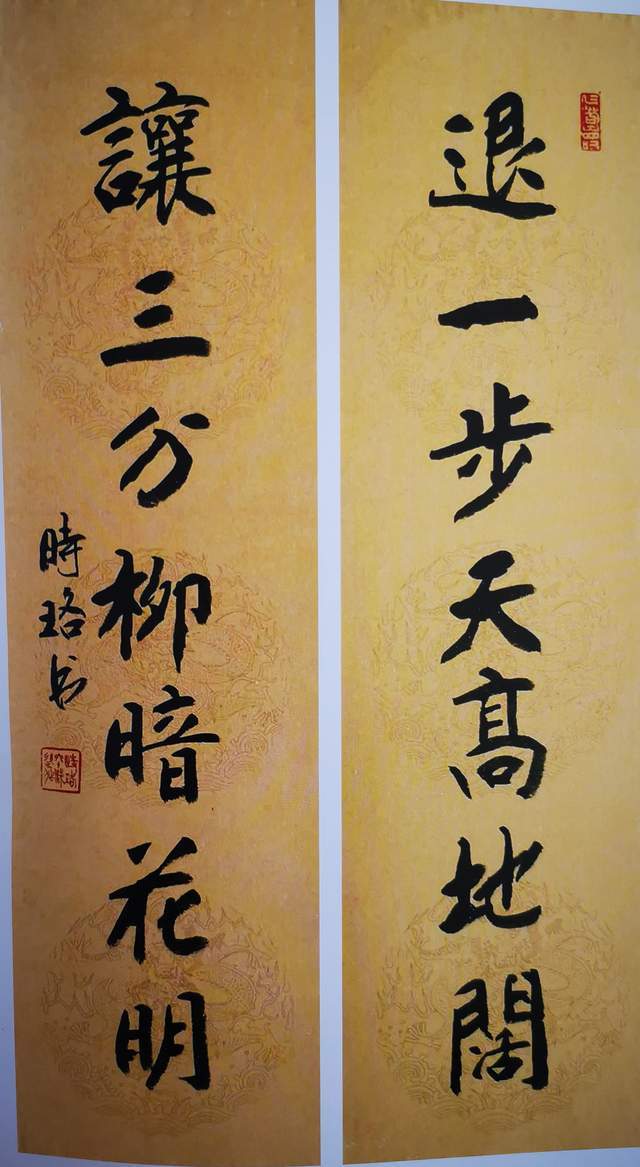 退一步天高地闊
讓三分柳暗花明
時珞书